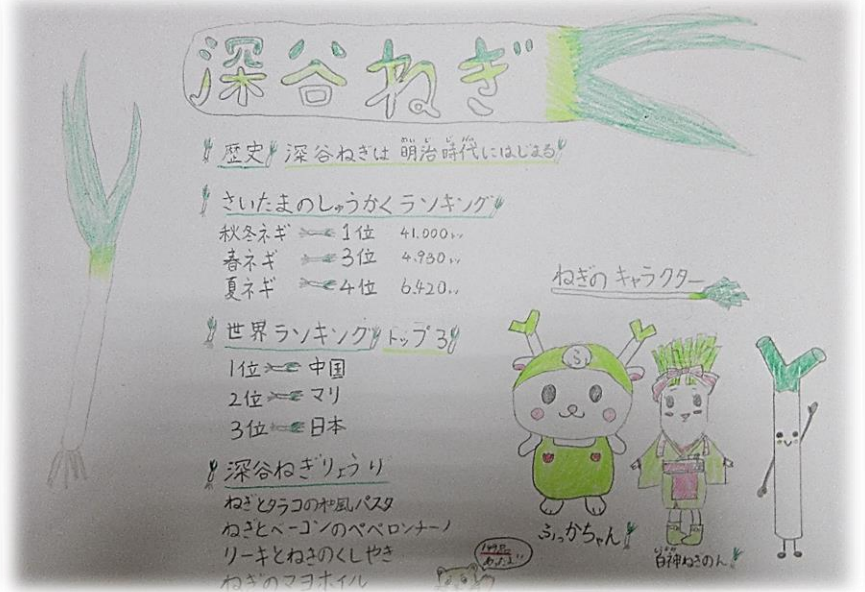 深谷ねぎ
歴史 深谷ねぎは明治時代にはじまる
さいたまのしゅうかくランキング
秋冬ネギ 1位 41.000トン
春ネギ 3位 4.930トン
夏ネギ 4位 6.420トン
ねぎのキャラクター
世界ランキング トップ3
1位 中国
2位 マリ
3位 日本
深谷ねぎりょうり
ねぎとタラコの和風パスタ
ねぎとベーコンのペペロンチーノ
リーキとねぎのくしやき
ねぎのマヨホイル
ふっかちゃん
白神ねぎのん